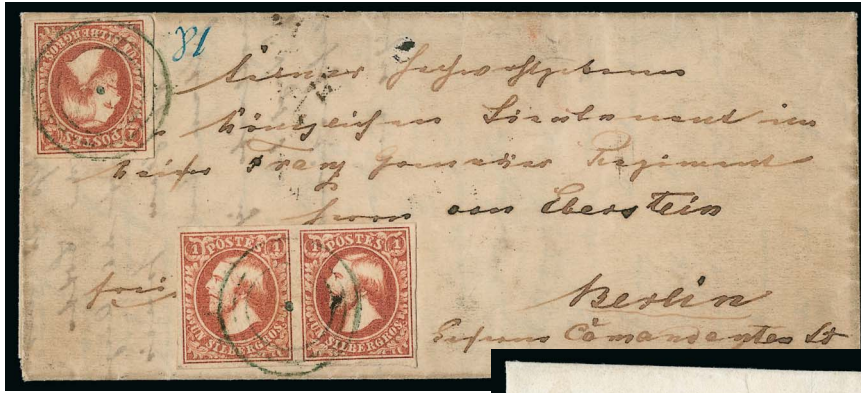 Seiner Hochwohlgeboren
Königlichen Lieutenant im
Kaiser Franz Grenadier Regiment
Herrn von Eberstein
frei
Berlin
1 POSTES 1
UN SILBERGROS
1 POSTES 1
UN SILBERGROS
POSTES
UN SILBERGROS